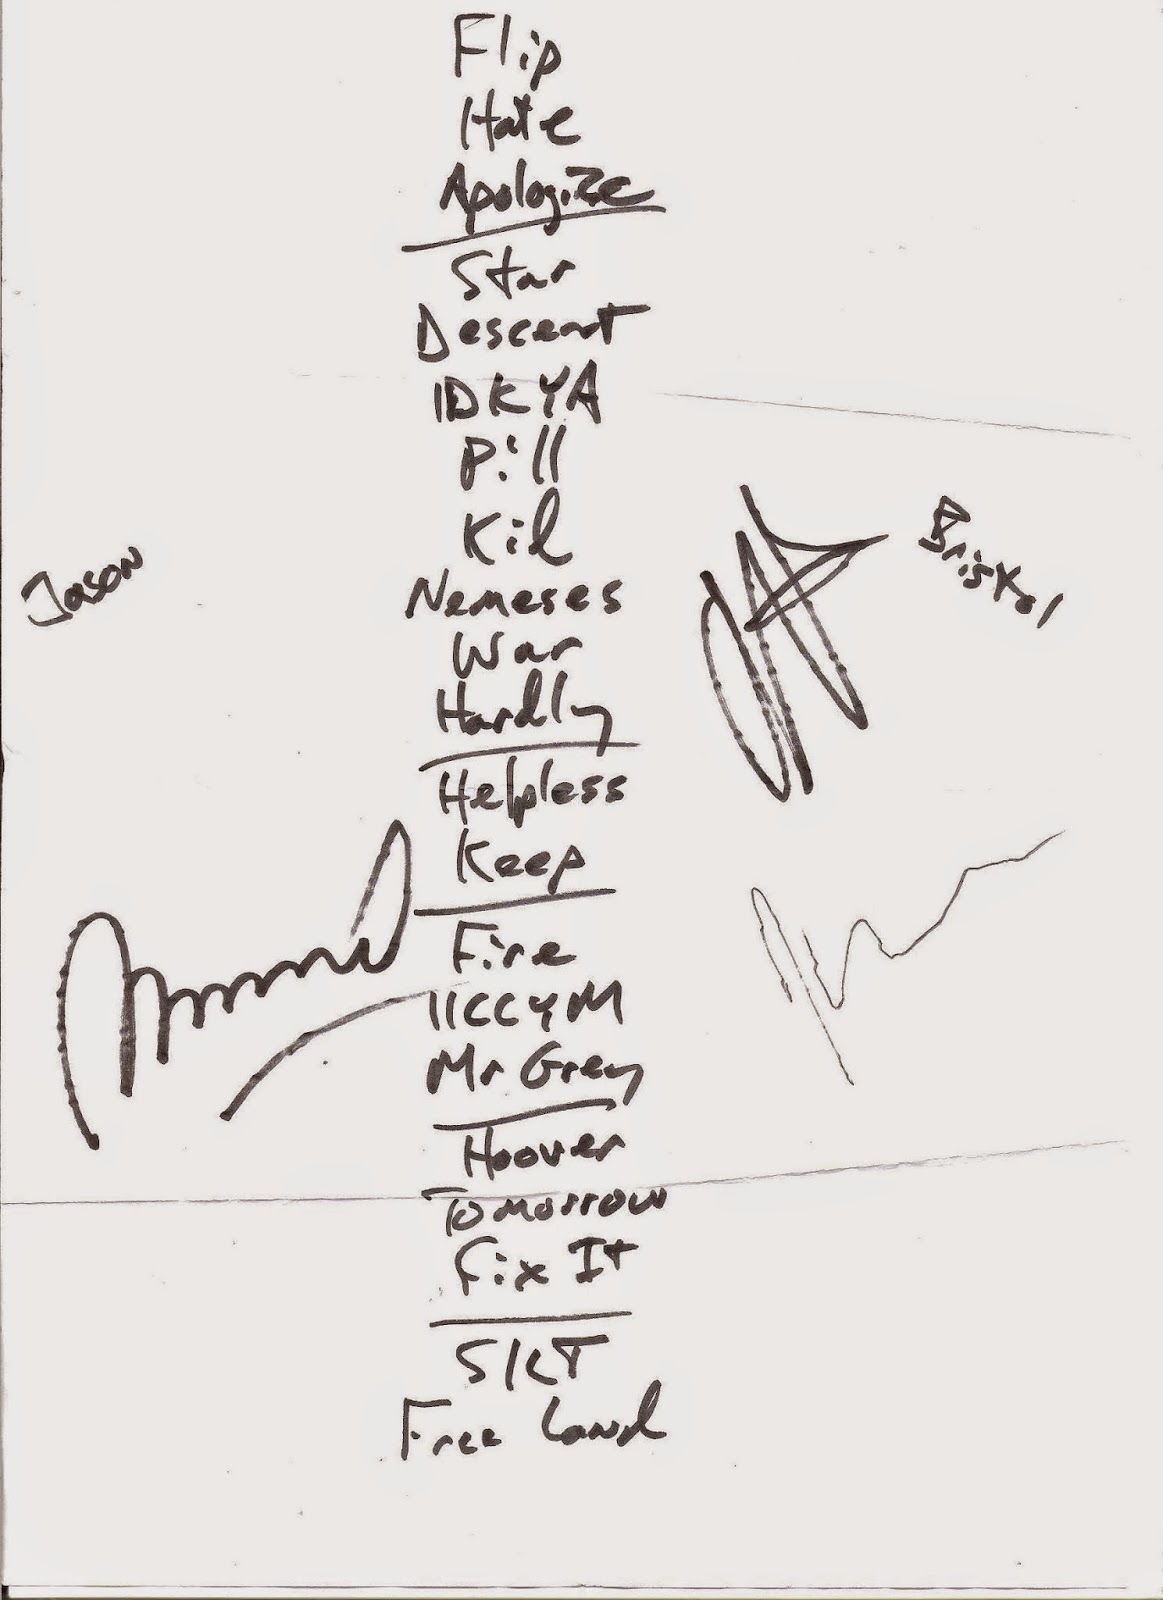 Flip
Hate
Apologize
Star
Descent
IDKYA
Pill
Kid
Nemeses
War
Hardly
Helpless
Keep
Fire
IICCYM
Mr Grey
Hoover
Tomorrow
Fix It
SKT
Free Land
Jason
Bristol